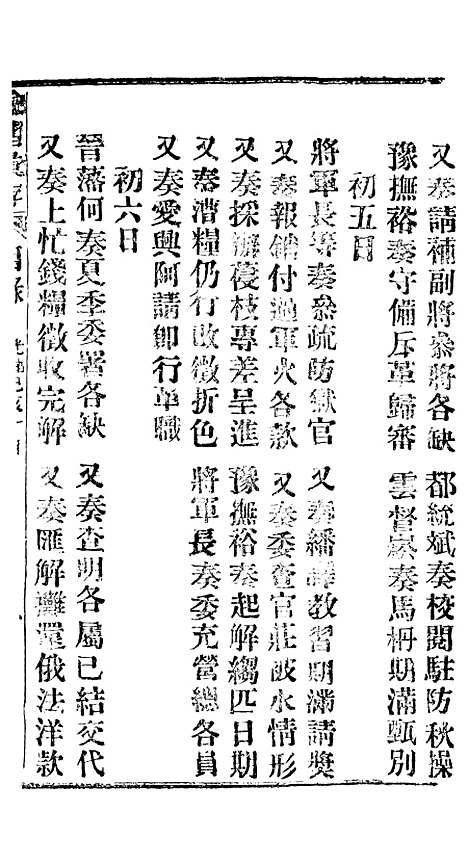 又奏請補副將叅將各缺　都統斌奏校閱駐防秋操
豫撫裕奏守備斥革歸審　雲督崧奏馬枬期滿甄別
初五日
將軍長等奏叅疏防獄官　又奏繙譯教習期滿請獎
又奏報銷付過軍火各款　又奏委查官莊被水情形
又奏採辦榎枝專差呈進　豫撫裕奏起解縐匹日期
又奏漕糧仍行改徵折色　將軍長奏委充營總各員
又奏愛興阿請卽行革職
初六日
晉藩何奏夏季委署各缺　又奏查明各屬已結交代
又奏上忙錢糧徵收完解　又奏匯解攤還俄法洋款
諭摺彙存 目錄　光緒己亥十月